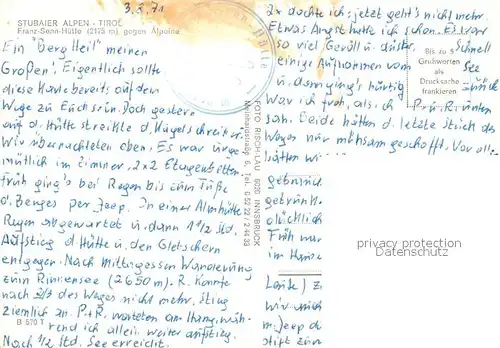 3.8.71
STUBAIER ALPEN - TIROL
Franz-Senn-Hütte (2173 m), gegen Alpeine
Ein "Berg Heil" meinen
Großen! Eigentlich sollte
diese Karte bereits auf dem
Wege zu Euch sein. Doch gestern
auf d. Hütte streikte d. Kugelschreiber.
Wir übernachteten oben. Es war urge-
mütlich im Zimmer, 2x2 Etagenbetten
Früh ging's bei Regen bis zum Fuße
d. Berges per Jeep. In einer Almhütte
Regen abgewartet u. dann 1 1/2 Std.
Aufstieg d. Hütte u. den Gletschern
entgegen. Nach Mittagessen Wanderung
zum Rinnensee (2650 m). R. konnte
nach 2/3 des Weges nicht mehr. Stieg
ziemlich an. P.+R. warteten am Hang, wäh-
rend ich allein weiter aufstieg.
Nach 1/2 Std. See erreicht.
B 570 T
FOTO RISCH-LAU 6020 INNSBRUCK
6, Tel. 0 52 22 / 2 44 33
Hütte
2x dachte ich: jetzt geht's nicht mehr.
Etwas Angst hatte ich schon. Es war
so viel Geröll u. düster. Schnell
einige Aufnahmen vom See
u. dann ging's hurtig zurück
War ich froh, als ich P. u. R. unten
sah. Beide hatten d. letzte Stück des
Weges nur mühsam geschafft. Vor all
hatten wi
Bis zu 5
Grußworten
als
Drucksache
frankieren
glücklich
Früh
im
privacy protection
Datenschutz
wir
m. Jeep d